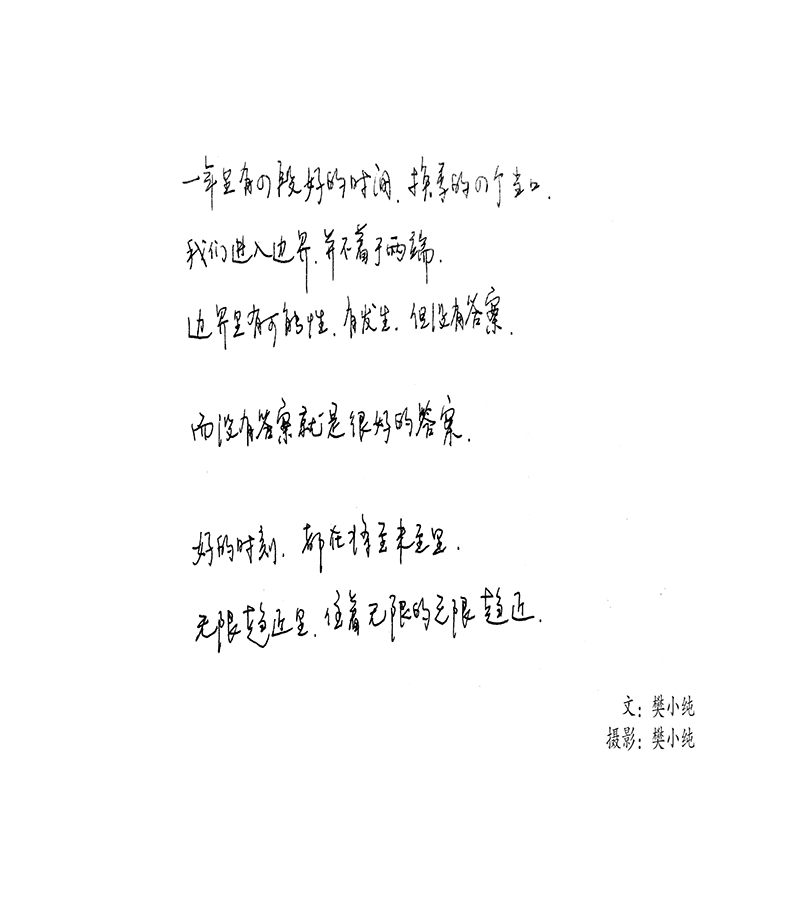 一年里有四段好的时间，换季的四个当口。
我们进入边界，并不着于两端。
边界里有可能性，有发生，但没有答案。
而没有答案就是很好的答案。
好的时刻，都在将至未至里。
无限趋近里，住着无限的无限趋近。
文：樊小纯
摄影：樊小纯